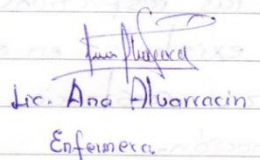 Lic. Ana Alvarracin
Enfermera